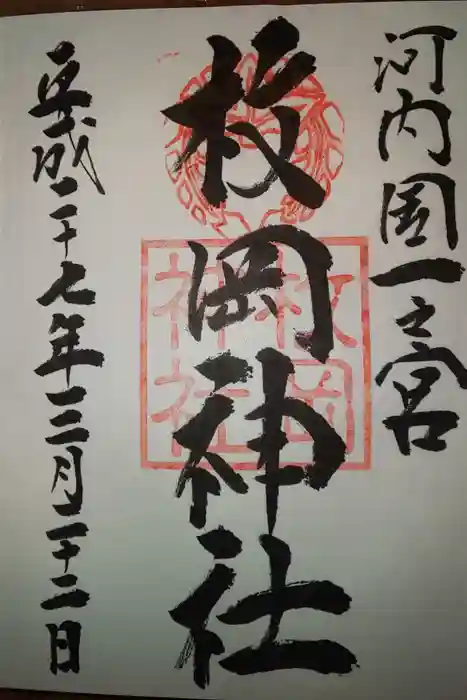 河内國一之宮
枚岡神社
平成二十七年三月二十二日
枚岡
神社